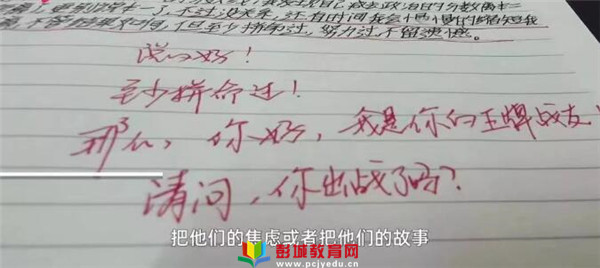 不管结果如何,但至少拼命过,努力过,不留遗憾。
说的好!
至少拼命过!
那么,你好,我是你的王牌战友!
请问,你出战了吗?
把他们的焦虑或者把他们的故事
彭城教育网
www.pcjyedu.cn